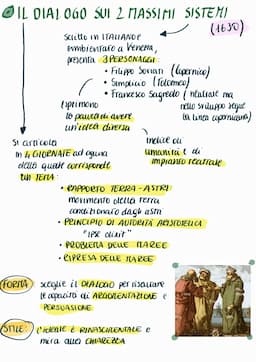 IL DIALOGO SUI 2 MASSIMI SISTEMI
(1630)
scritto in ITALIANO e
ambientato a Venezia,
presenta 3 PERSONAGGI
• Filippo Salviati (Copernico)
• Simplicio (Tolomeo)
• Francesco Sagredo (neutrale ma
nello sviluppo segue
la linea copernicana)
esprimono
la paura di avere
un'idea diversa
indice di
umanità e di
impianto teatrale
Si articola
in 4 GIORNATE ad ognuna
delle quali corrisponde
un TEMA:
• RAPPORTO TERRA-ASTRI
movimento della terra
condizionato dagli astri
• PRINCIPIO DI AUTORITÀ ARISTOTELICA
"IPSE DIXIT"
• PROBLEMA DELLE MAREE
• RIPRESA DELLE MAREE
FORMA: sceglie il DIALOGO per risaltare
le capacità di ARGOMENTAZIONE e
PERSUASIONE
STILE: l'ideale è RINASCIMENTALE e
mira alla CHIAREZZA